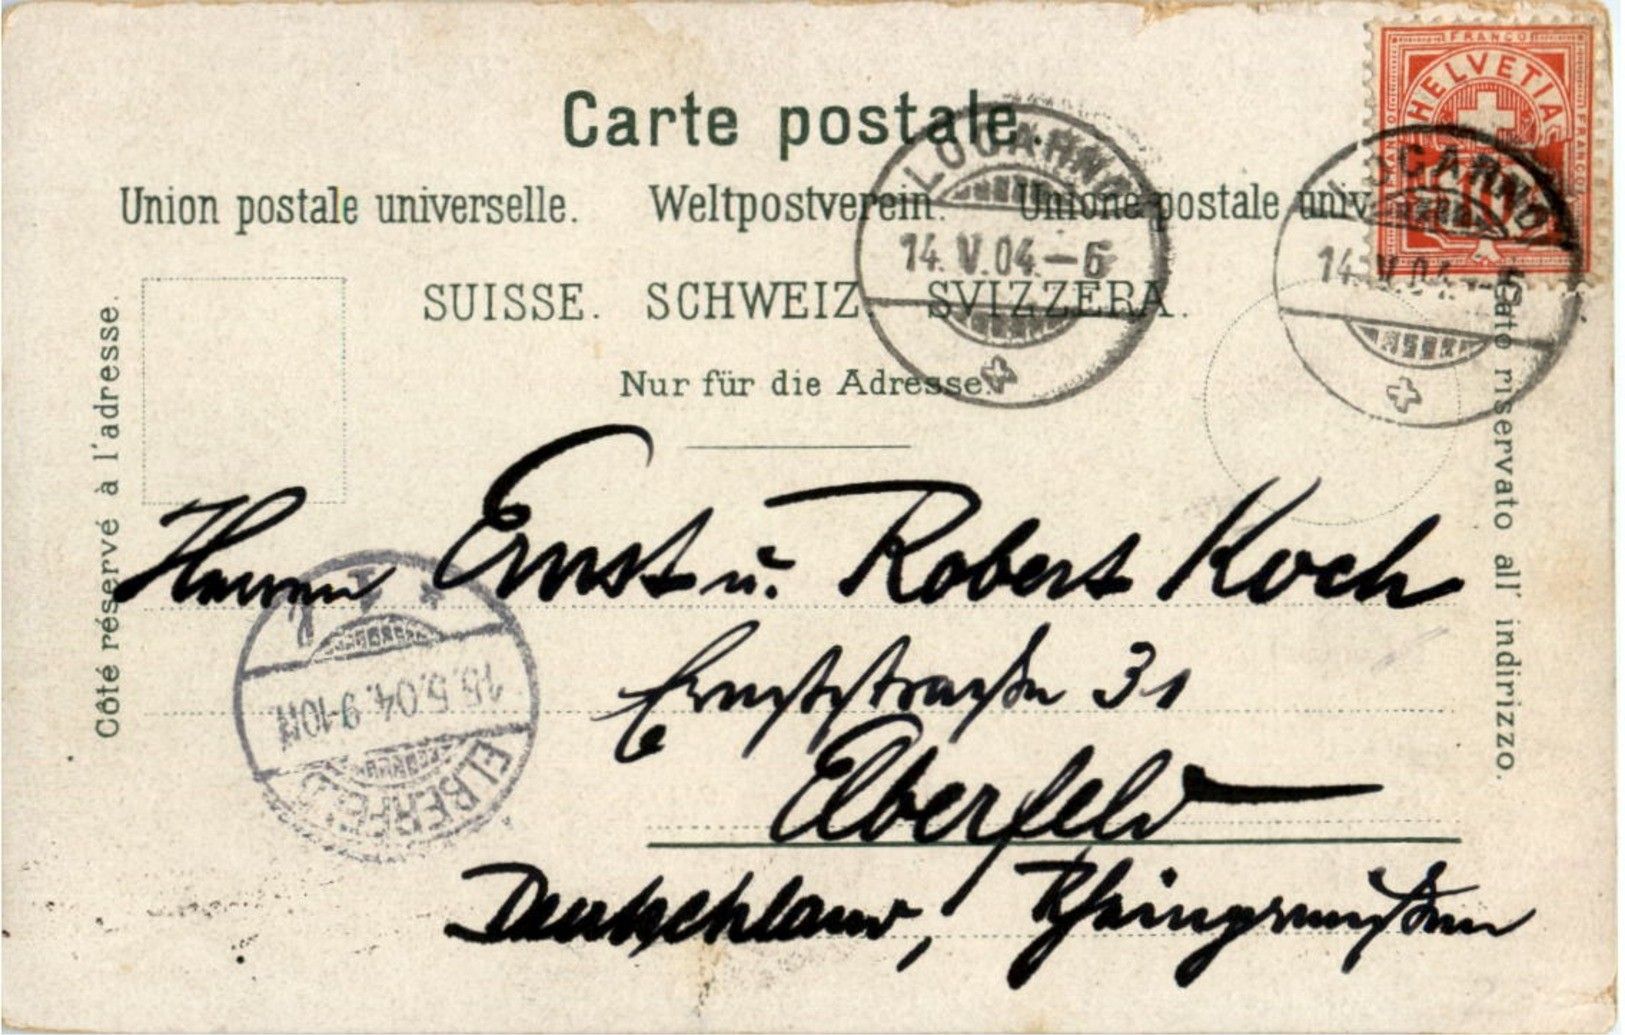 FRANCO
HELVETIA
Carte postale.
LOCARNO
LOCARNO
Union postale universelle. Weltpostverein. Unione postale univ
14.V.04.-6
14.V.04.-6
SUISSE. SCHWEIZ. SVIZZERA.
Nur für die Adresse.
Côté réservé à l'adresse.
Lato riservato all' indirizzo.
Herren Ernst u. Robert Koch
Ernststraße 31
15.5.04. 9-10N
ELBERFELD
Elberfeld
Deutschland, Rheinpreußen